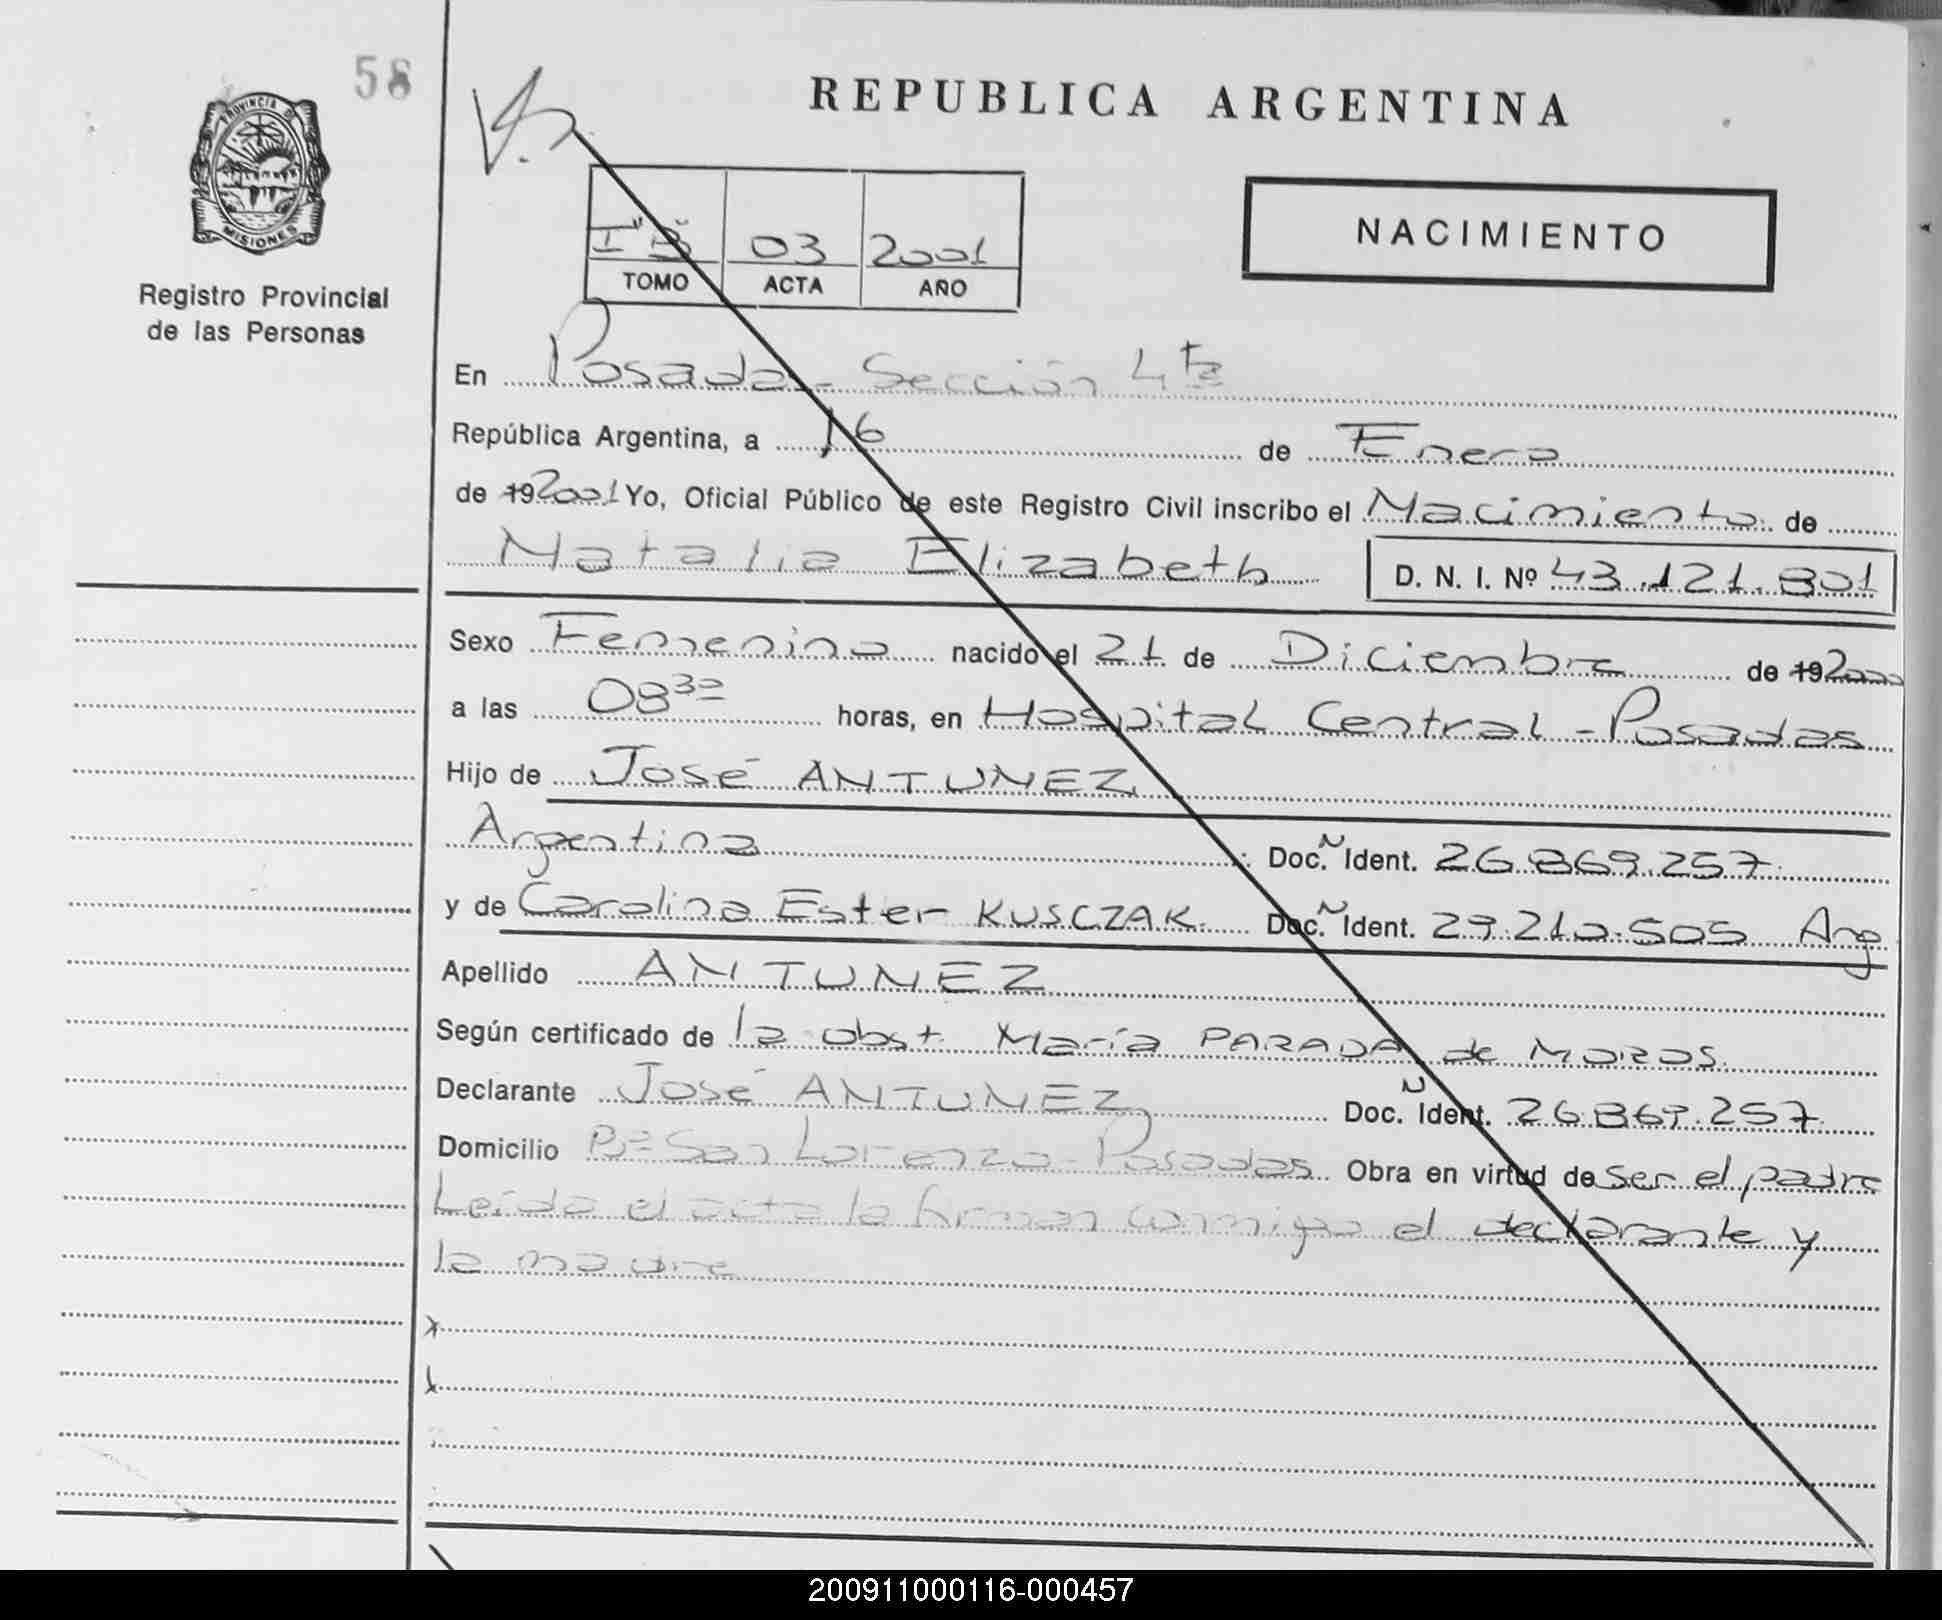 58
REPUBLICA ARGENTINA
PROVINCIA DE
MISIONES
Registro Provincial
de las Personas
I" B 03 2001
TOMO ACTA AÑO
NACIMIENTO
En Posadas - Sección 4ta
República Argentina, a 16 de Enero
de 19 2001 Yo, Oficial Público de este Registro Civil inscribo el Nacimiento de
Natalia Elizabeth D. N. I. Nº 43.121.801
Sexo Femenino nacido el 21 de Diciembre de 19 2000
a las 08 30 horas, en Hospital Central - Posadas
Hijo de José ANTUNEZ
Argentina Doc. Ident. 26.869.257
y de Carolina Ester KUSCZAK. Doc. Ident. 29.210.505 Arg
Apellido ANTUNEZ
Según certificado de la obst. María PARADA de
Declarante José ANTUNEZ Doc. Ident. 26.869.257
Domicilio Bº San Lorenzo - Posadas Obra en virtud de ser el padre
Leída el acta la firman conmigo el declarante y
la madre
200911000116-000457